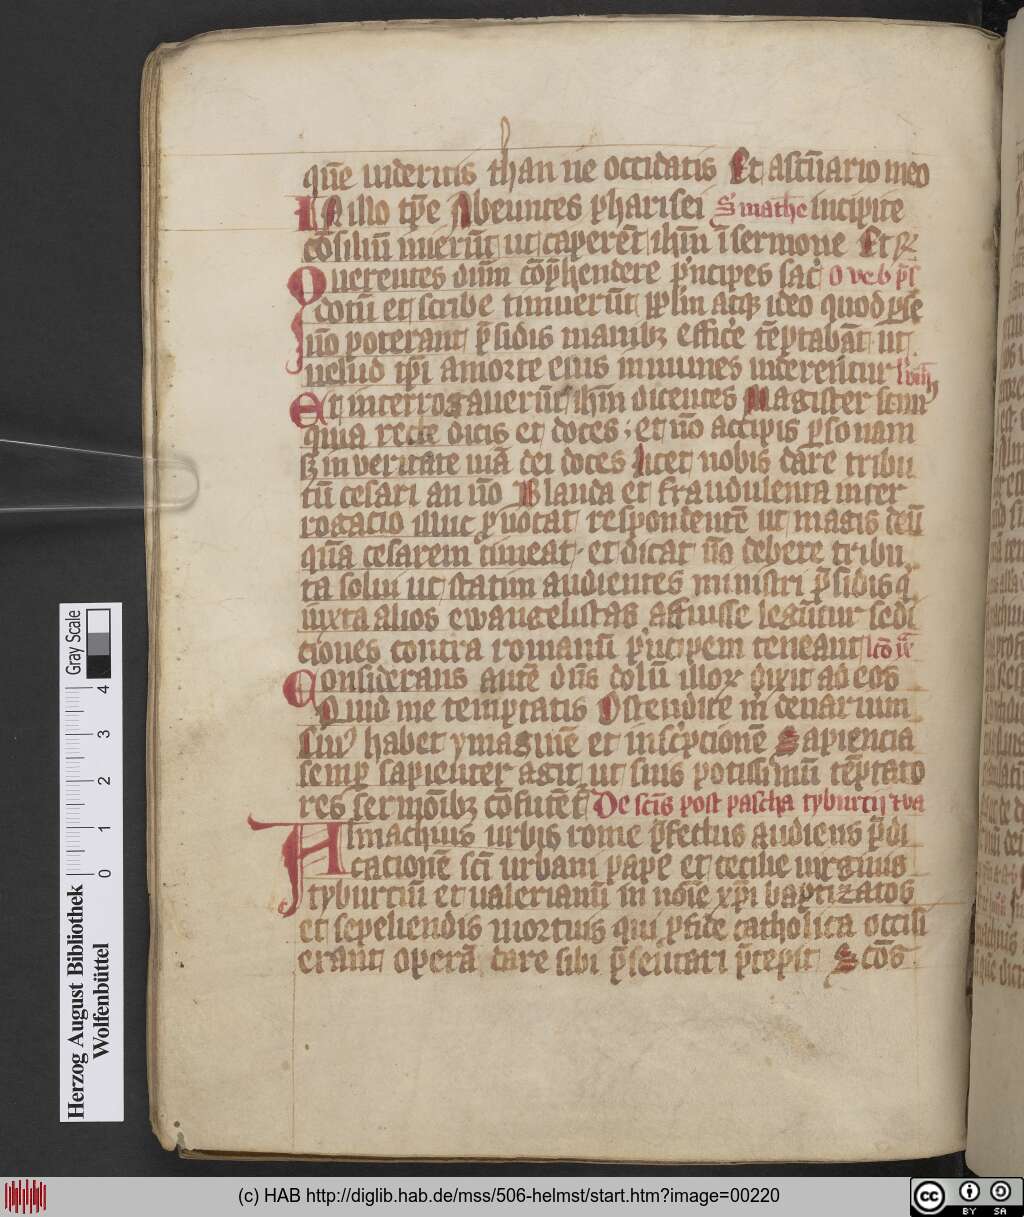 quē uideritis than ne occidatis Et a sctūario meo
IN illo tp̄e Abeuntes pharisei S' mathe incipite
cōsiliū inierūt ut caperēt ihm̄ ī sermone Et
Querentes dnm̄ cōp̄hendere p'ncipes sac̄
dotū et scribe timuerūt pplm atq; ideo quod p se
nō poterant p̄sidis manibꝫ effic'e tēptabāt ut
uelud ip̄i a morte eius inmunes interentur
Et interrogauerūt ihm̄ dicentes Magister scim'
quia recte dicis et doces ; et nō accipis p̱sonam
sꝫ in veritate uiā dei doces licet nobis dare tribu
tū cesari an nō Blanda et fraudulenta inter
rogacio illuc p̱uocat respondentē ut magis deū
quā cesarem timeat · et dicat nō debere tribu
ta solui ut statim audientes ministri p̄sidis q̄
iuxta alios ewangelistas affuisse legūtur sedi
ciones contra romanū p'ncipem teneant
Considerans autē dn̄s dolū illoꝝ dixit ad eos
Quid me temptatis Ostendite m̄ denarium
Cui' habet ymaginē et insc'pcionē Sapiencia
semp̱ sapienter agit ut suis potissimū tēptato
res sermōibꝫ cōfutēt' De scīs post pascha tyburcij
Almachius urbis rome p̄fectus audiens p̄di
cacionē scī urbani pape et cecilie uirginis
tyburciū et ualerianū in noīe xp̄i baptizatos
et sepeliendis mortuis qui p̱ fide catholica occisi
erant operā dare sibi p̄sentari p̄cepit Scōs
Gray Scale
4 3 2 1 0
Herzog August Bibliothek
Wolfenbüttel
(c) HAB http://diglib.hab.de/mss/506-helmst/start.htm?image=00220
cc BY SA